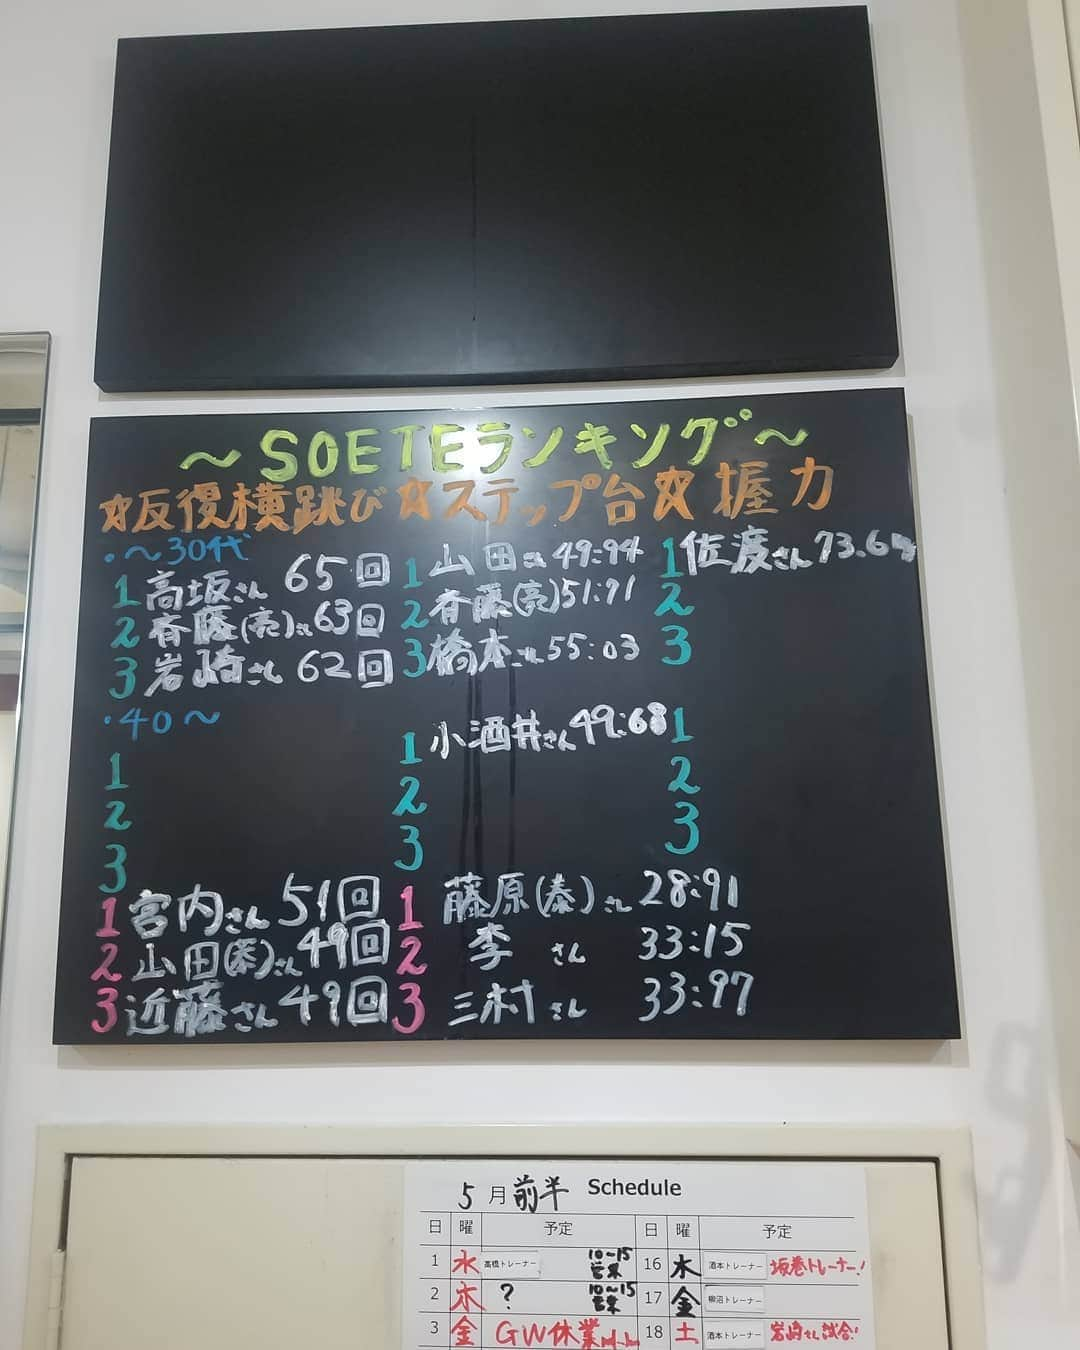 ～SOETEランキング～
☆反復横跳び ☆ステップ台 ☆握力
・～30代
1 高坂さん 65回
2 斉藤(亮)さん 63回
3 岩崎さん 62回
1 山田さん 49:94
2 斉藤(亮) 51:91
3 橋本さん 55:03
1 佐渡さん 73.6kg
2
3
・40～
1
2
3
1 小酒井さん 49:68
2
3
1
2
3
1 宮内さん 51回
2 山田(泰)さん 49回
3 近藤さん 49回
1 藤原(泰)さん 28:91
2 李 さん 33:15
3 三村さん 33:97
5月前半 Schedule
日 曜 予定 日 曜 予定
1 水 高橋トレーナー 10～15 営業 16 木 酒本トレーナー 坂巻トレーナー!
2 木 ? 10～15 営業 17 金 柳沼トレーナー
3 金 GW休業 18 土 酒本トレーナー 岩崎さん試合!